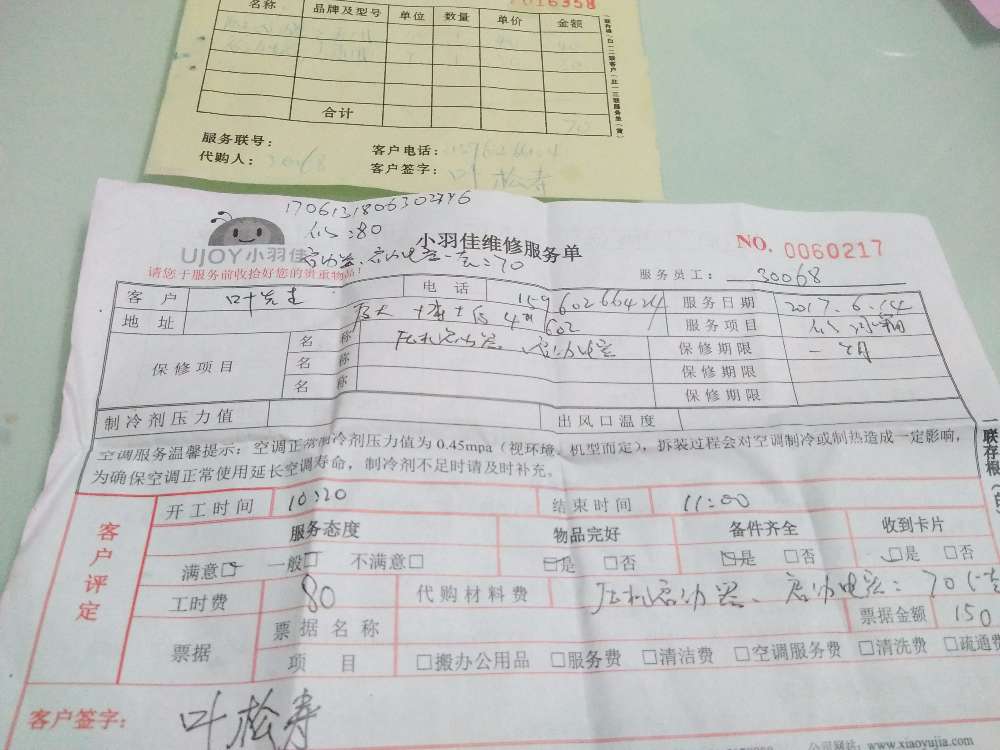 名称 品牌及型号 单位 数量 单价 金额
合计 70
服务联号：
代购人：30068 客户电话：
客户签字：叶松寿
1706131806302796
UJOY小羽佳
小羽佳维修服务单
NO. 0060217
请您于服务前收拾好您的贵重物品！
服务员工：30068
客户 叶先生 电话 15960266424 服务日期 2017.6.14
地址 602 服务项目
保修项目 名称 压机启动器、启动电容 保修期限 一个月
名称 保修期限
名称 保修期限
制冷剂压力值 出风口温度
空调服务温馨提示：空调正常制冷剂压力值为0.45mpa（视环境、机型而定），拆装过程会对空调制冷或制热造成一定影响，
为确保空调正常使用延长空调寿命，制冷剂不足时请及时补充。
客户评定
开工时间 10:20 结束时间 11:00
服务态度 物品完好 备件齐全 收到卡片
满意□ 一般□ 不满意□ □是 □否 □是 □否 □是 □否
工时费 80 代购材料费 压机启动器、启动电容：70
票据 票据名称 票据金额 150
项目 □搬办公用品 □服务费 □清洁费 □空调服务费 □清洗费 □疏通费
客户签字：叶松寿
公司网站：www.xiaoyujia.com
联存根